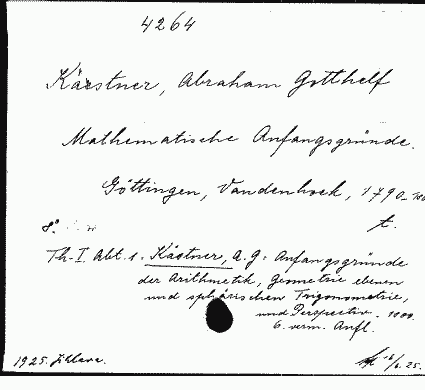 4264
Kaestner, Abraham Gotthelf
Mathematische Anfangsgründe.
Göttingen, Vandenhoek, 1790-1800
8° t.
Th. I Abt. 1. Kästner, A. G. Anfangsgründe
der Arithmetik, Geometrie ebenen
und sphärischen Trigonometrie,
und Perspectiv. 1800.
6. verm. Aufl.
1925.